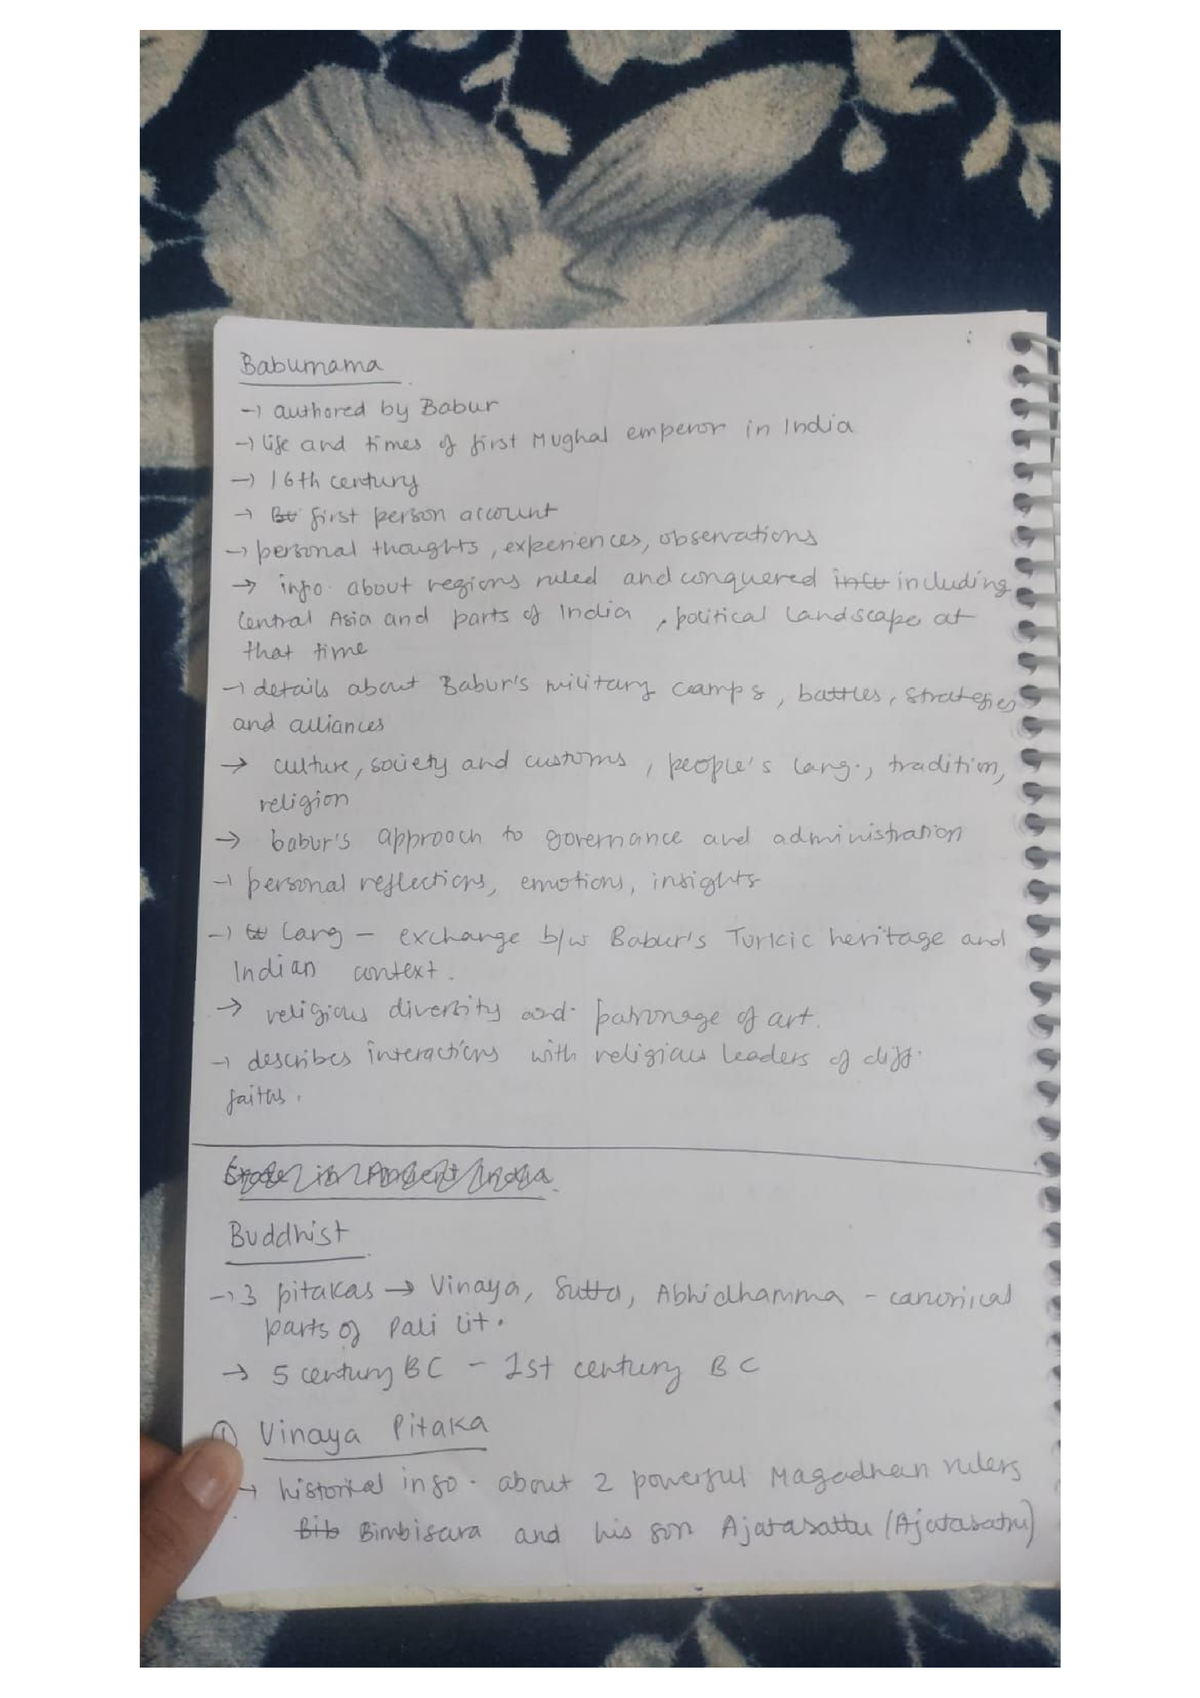 Baburnama
→ authored by Babur
→ life and times of first Mughal emperor in India
→ 16th century
→ first person account
→ personal thoughts, experiences, observations
→ info. about regions ruled and conquered including
Central Asia and parts of India, political landscape at
that time
→ details about Babur's military camps, battles, strategies
and alliances
→ culture, society and customs, people's lang., tradition,
religion
→ babur's approach to governance and administration
→ personal reflections, emotions, insights
→ Lang - exchange b/w Babur's Turkic heritage and
Indian context.
→ religious diversity and patronage of art.
→ describes interactions with religious leaders of diff.
faiths.
in Ancient India
Buddhist
→ 3 pitakas → Vinaya, Sutta, Abhidhamma - canonical
parts of Pali lit.
→ 5 century BC - 1st century BC
① Vinaya Pitaka
→ historical info. about 2 powerful Magadhan rulers
Bib Bimbisara and his son Ajatasattu (Ajatasatru)